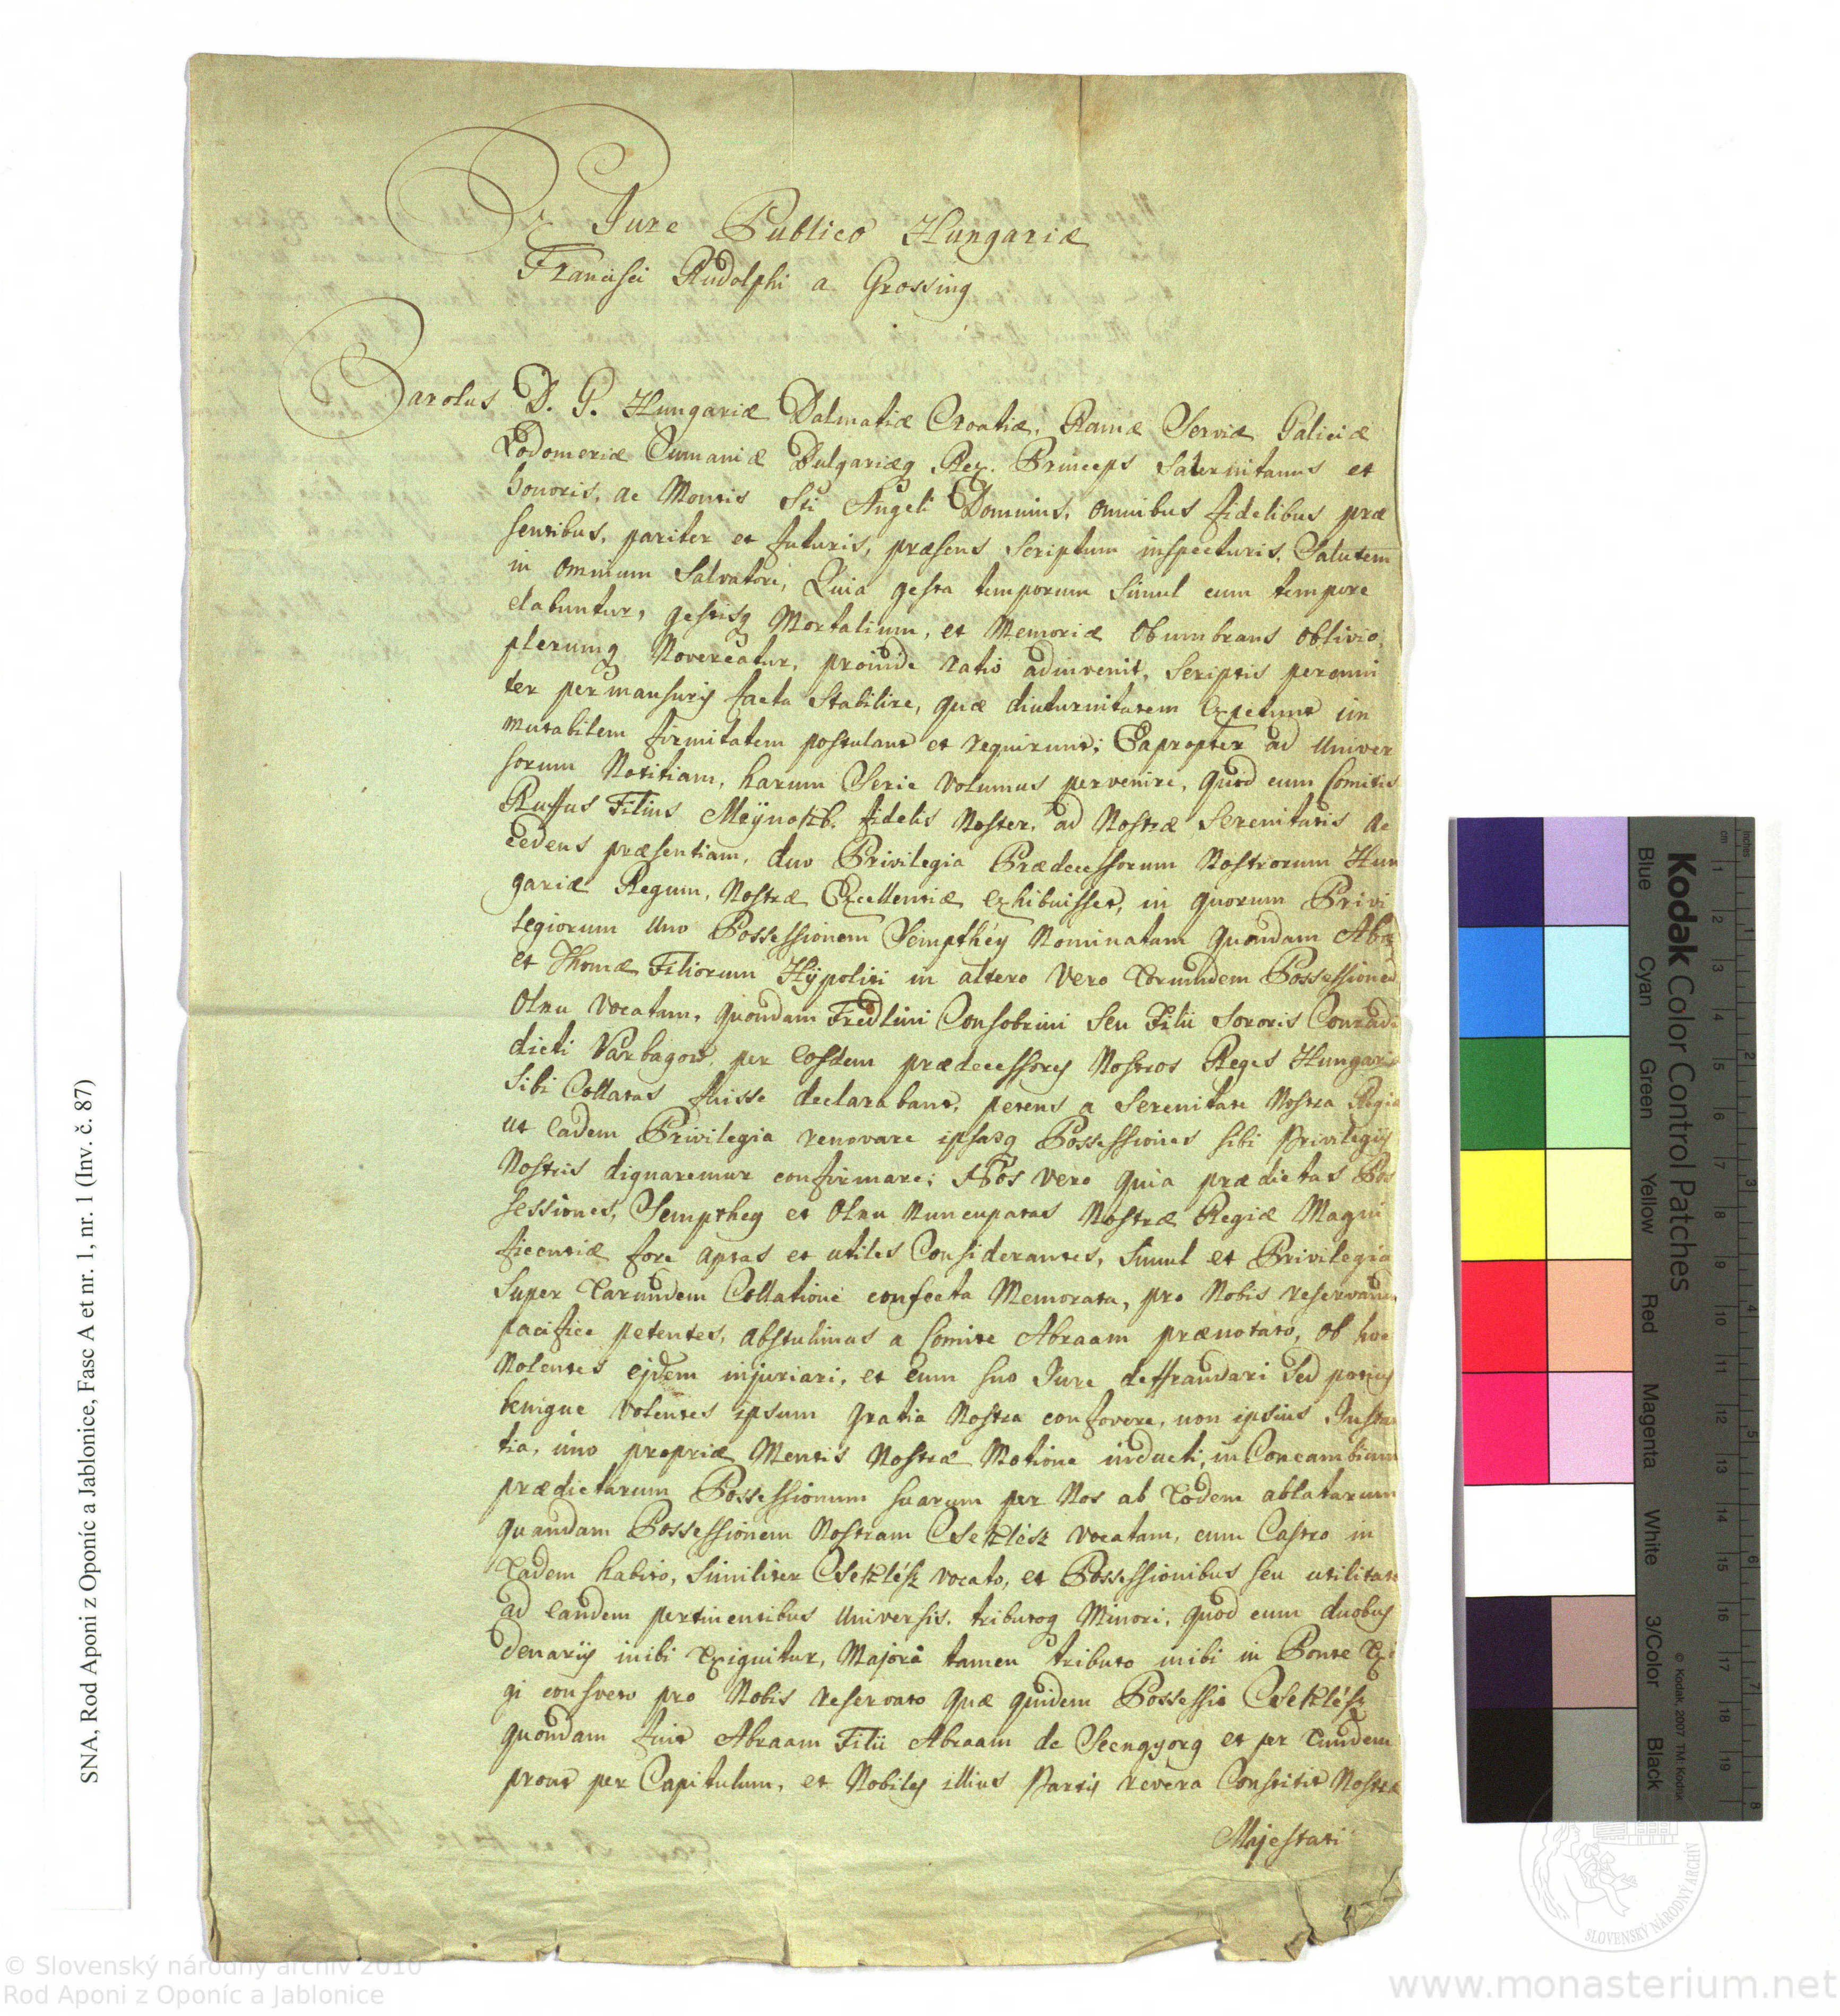 Ex Jure Publico Hungariæ
Francisci Rudolphi a Grossing
Carolus D. G. Hungariæ Dalmatiæ Croatiæ, Ramæ Serviæ Galiciæ
Lodomeriæ Cumaniæ Bulgariæq Rex. Princeps Salernitanus et
honoris, ac Montis Sti Angeli Dominus, omnibus fidelibus præ
sentibus, pariter et futuris, præsens Scriptum inspecturis, Salutem
in omnium Salvatore, Quia gesta temporum Simul cum tempore
elabuntur, gestisq Mortalium, et Memoriæ Obumbrans Oblivio,
plerumq Novercatur, proinde ratio adinvenit, Scriptis perenni
ter permansuris facta Stabilire, quæ diuturnitatem Expetunt im
mutabilem firmitatem postulant et requirunt; Eapropter ad Univer
sorum Notitiam, harum Serie Volumus pervenire, quod cum Comitis
Ruffus Filius Meÿnoldi, fidelis Noster, ad Nostræ Serenitatis ac
cedens præsentiam, duo Privilegia Prædecessorum Nostrorum Hun
gariæ Regum, Nostræ Excellentiæ exhibuisset, in quorum Privi
legiorum Uno Possessionem Sempthéÿ Nominatam quondam Abæ
et Thomæ Filiorum Hÿpoliti in altero Vero Eorundem Possessionem
Olnu Vocatam, quondam Fredlini Consobrini Seu Filii Sororis Conradi
dicti Varbagow, per Eosdem prædecessores Nostros Reges Hungariæ
Sibi Collatas fuisse declarabant, petens a Serenitate Nostra Regia
ut Eadem Privilegia renovare ipsasq Possessiones Sibi Privilegijs
Nostris dignaremur confirmare; Nos Vero quia prædictas Pos
sessiones, Sempthey et Olnu Nuncupatas Nostræ Regiæ Magni
ficentiæ fore aptas et utiles Considerantes, Simul et Privilegia
Super Earundem Collatione confecta Memorata, pro Nobis reservanda
pacifice petentes, abstulimus a Comite Abraam prænotato, ob hoc
Nolentes ejdem injuriari, et Eum suo Jure deffraudari Sed potius
benigne Volentes ipsum gratia Nostra confovere, non ipsius Instan
tia, imo propriæ Mentis Nostræ Motione inducti, in Concambium
prædictarum Possessionum suarum per Nos ab Eodem ablatarum
quandam Possessionem Nostram Cseklész Vocatam, cum Castro in
Eadem habito, Similiter Cseklész vocato, et Possessionibus seu utilitate
ad Eandem pertinentibus Universis, tributoq Minori, quod cum duobus
denarijs inibi Exiguitur, Majori tamen tributo inibi in Ponte Exi
gi consveto pro Nobis reservato quæ quidem Possessio Cseklész
quondam fuit Abraam Filii Abraam de Scengyorg et per Eundem
prout per Capitulum, et Nobiles illius Partis revera Constitit Nostræ
Majestati
SNA, Rod Aponi z Oponíc a Jablonice, Fasc A et nr. 1, nr. 1 (Inv. č. 87)
Kodak Color Control Patches
© Kodak, 2007 TM: Kodak
Blue Cyan Green Yellow Red Magenta White 3/Color Black
cm 1 2 3 4 5 6 7 8 9 10 11 12 13 14 15 16 17 18 19
Inches 1 2 3 4 5 6 7 8
SLOVENSKÝ NÁRODNÝ ARCHÍV
© Slovenský národný archív 2010
Rod Aponi z Oponíc a Jablonice
www.monasterium.net